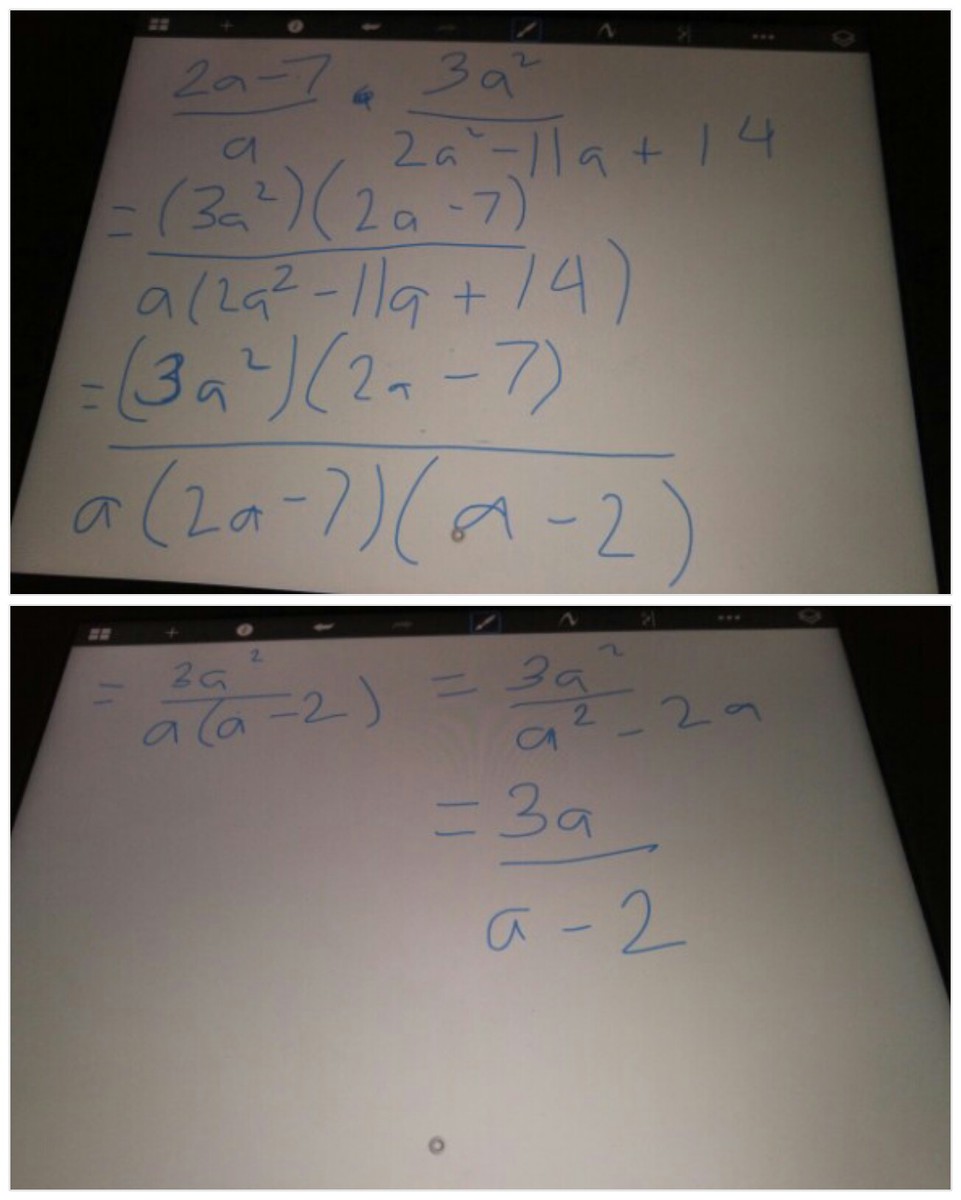 2a-7 3a²
— • —
a 2a²-11a + 14
= (3a²)(2a -7)
a(2a² - 11a + 14)
= (3a²)(2a - 7)
a(2a-7)(a - 2)
= 3a² / a(a-2) = 3a² / a² - 2a
= 3a
a - 2